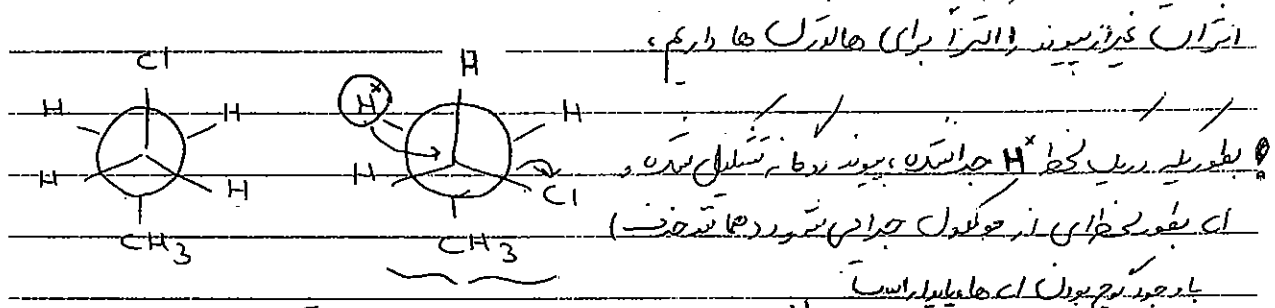 اثرات غیر از پیوند را اکثراً برای هالوژن ها داریم،
Cl
H
H
H
H
CH3
H
H×
H
H
Cl
CH3
بطوریکه در یک لحظه H× جدا شده، پیوند دوگانه تشکیل شده و
Cl بطور لحظه‌ای از مولکول جدا می شود (همانند حذف)
با وجود گوچ بودن Cl ها پایدار است